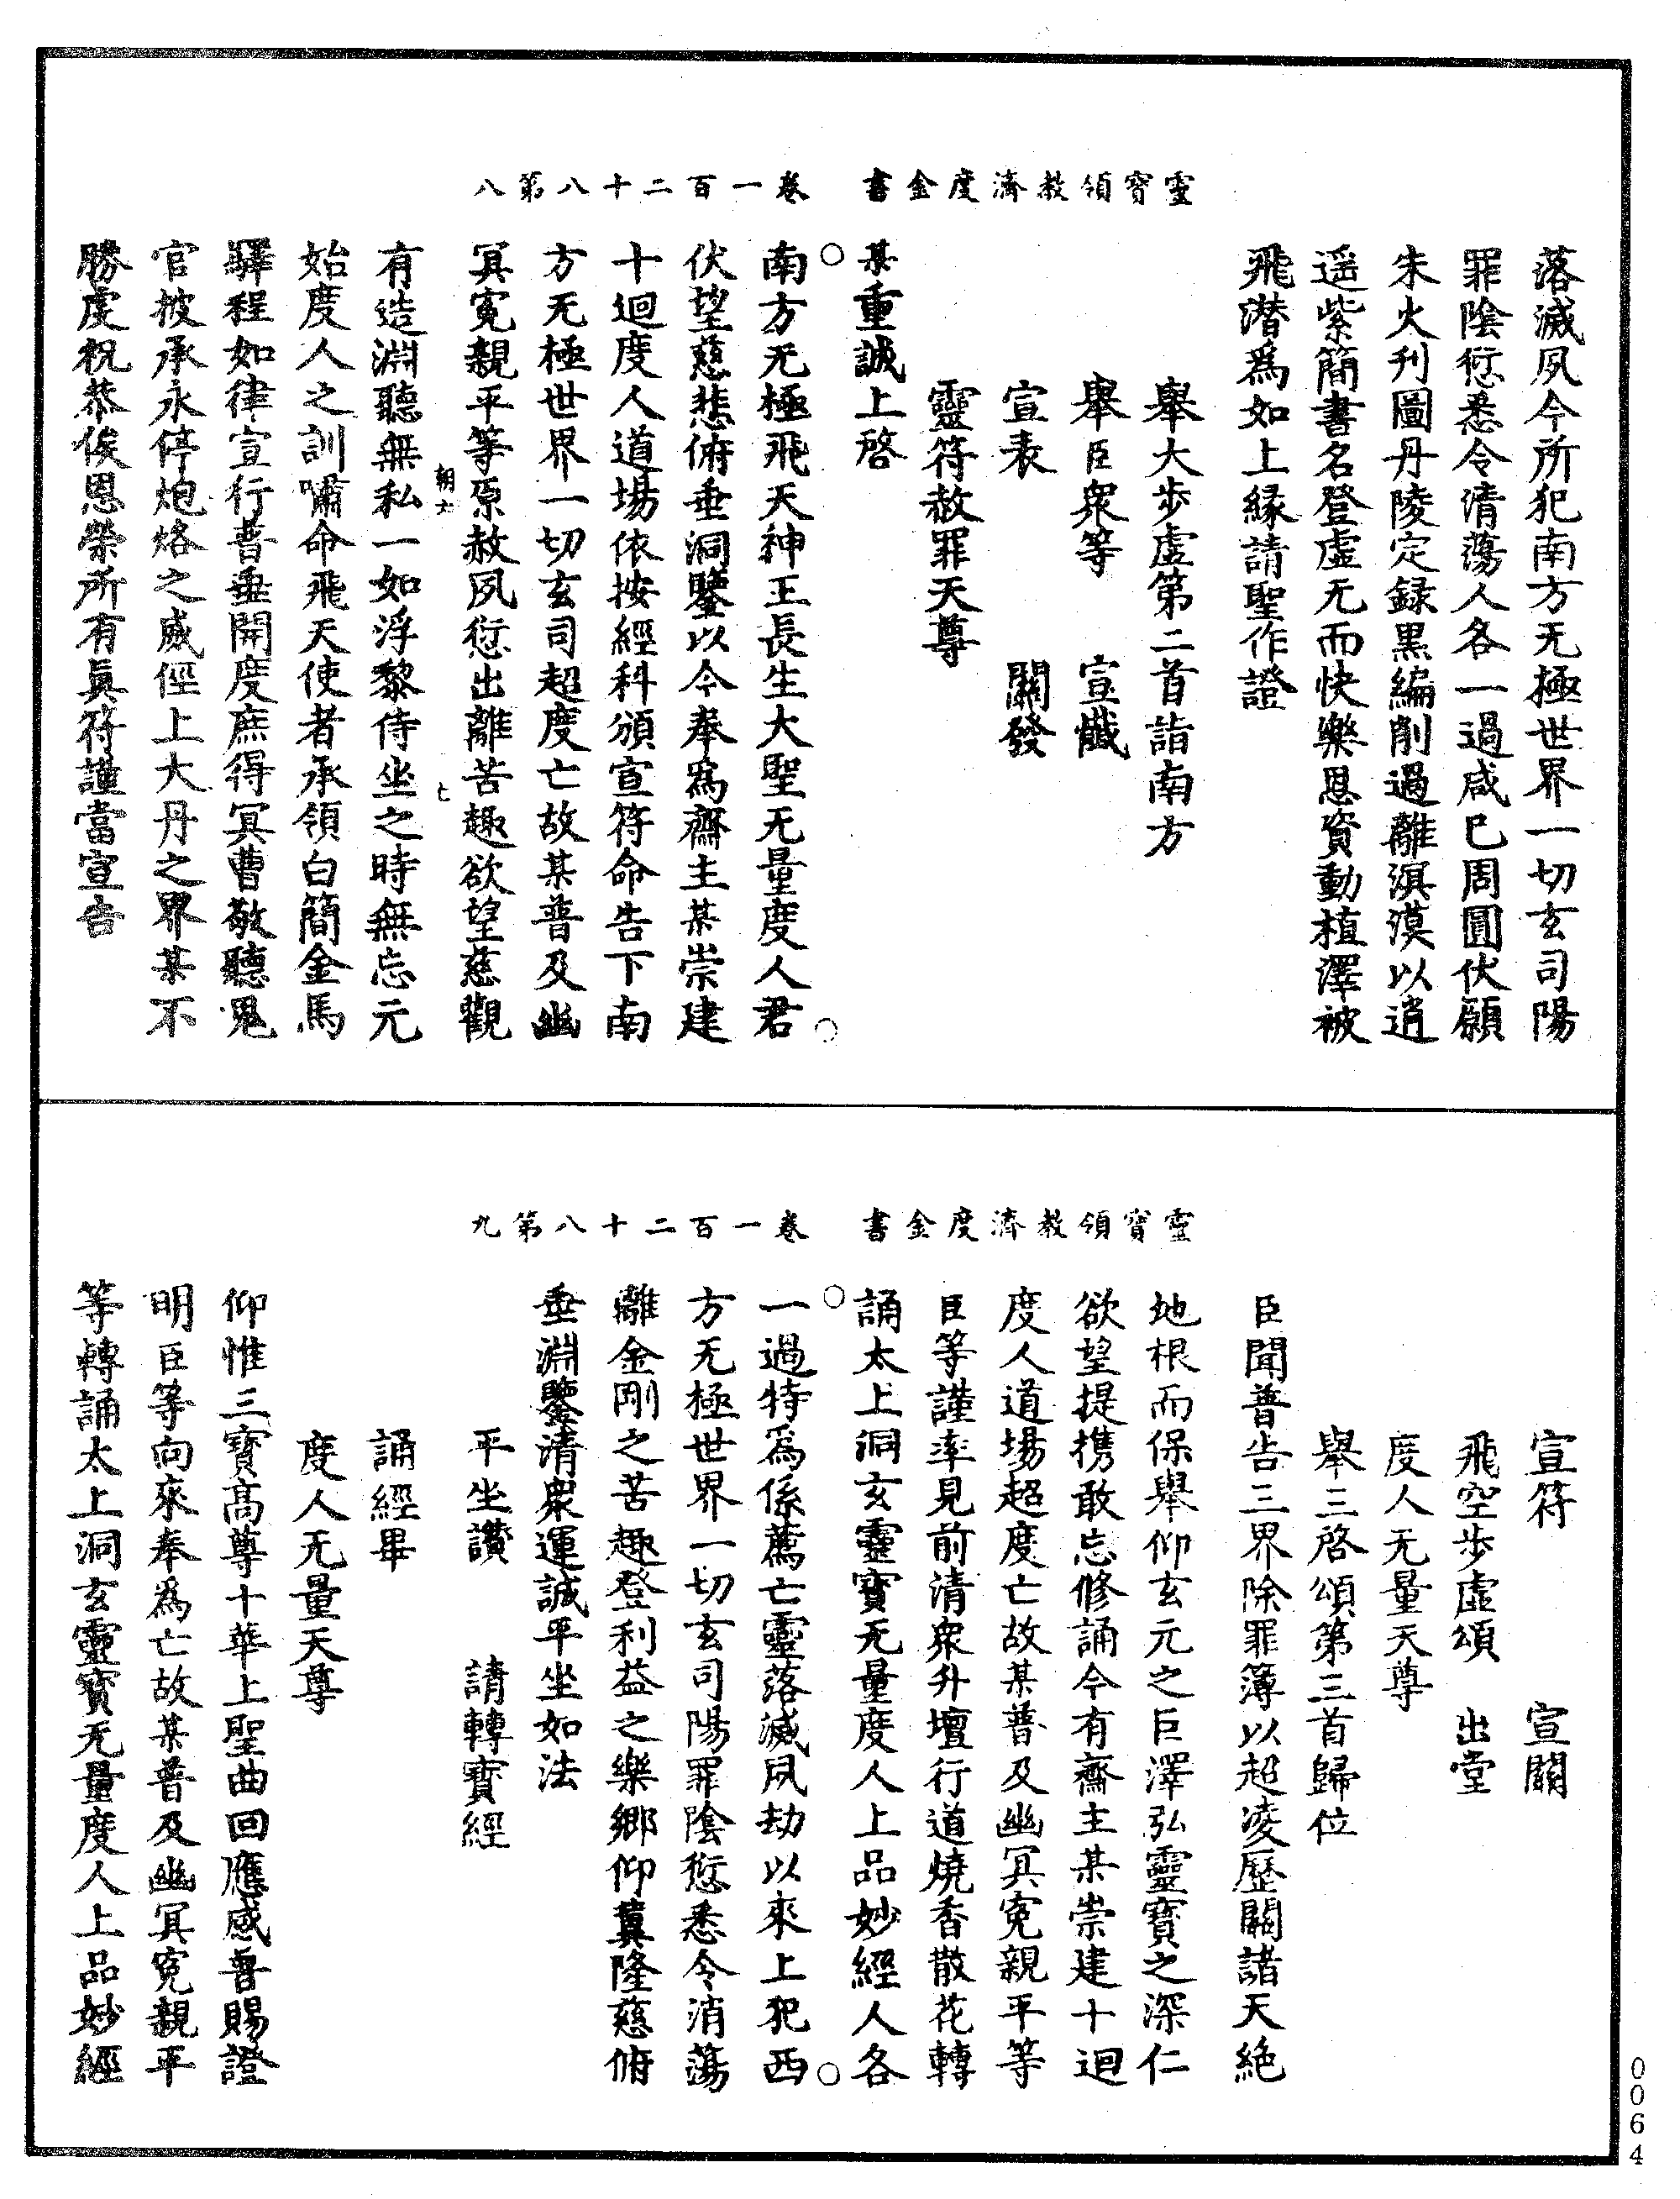 靈寶領教濟度金書　卷一百二十八第八
落滅夙今所犯南方无極世界一切玄司陽
罪陰愆悉令清蕩人各一過咸已周圓伏願
朱火刋圖丹陵定録黒編削過離溟漠以逍
遥紫簡書名登虚无而快樂恩資動植澤被
飛潜爲如上緣請聖作證
舉大步虚第二首詣南方
舉臣衆等　宣懺
宣表　關發
靈符赦罪天尊
某重誠上啓
南方无極飛天神王長生大聖无量度人君
伏望慈悲俯垂洞鑒以今奉爲齋主某崇建
十迴度人道場依按經科頒宣符命告下南
方无極世界一切玄司超度亡故某普及幽
冥寃親平等原赦夙愆出離苦趣欲望慈觀
朝六　七
有造淵聽無私一如浮黎侍坐之時無忘元
始度人之訓嘯命飛天使者承領白簡金馬
驛程如律宣行普垂開度庶得冥曹敬聽鬼
官披承永停炮烙之威俓上大丹之界某不
勝虔祝恭俟恩榮所有眞符謹當宣告
靈寶領教濟度金書　卷一百二十八第九
宣符　宣關
飛空步虚頌　出堂
度人无量天尊
舉三啓頌第三首歸位
臣聞普告三界除罪簿以超凌歷關諸天絶
地根而保舉仰玄元之巨澤弘靈寶之深仁
欲望提携敢忘修誦今有齋主某崇建十迴
度人道場超度亡故某普及幽冥寃親平等
臣等謹率見前清衆升壇行道燒香散花轉
誦太上洞玄靈寶无量度人上品妙經人各
一過特爲係薦亡靈落滅夙劫以來上犯西
方无極世界一切玄司陽罪陰愆悉令消蕩
離金剛之苦趣登利益之樂鄉仰冀隆慈俯
垂淵鑒清衆運誠平坐如法
平坐讚　請轉寶經
誦經畢
度人无量天尊
仰惟三寶高尊十華上聖曲回應感普賜證
明臣等向來奉爲亡故某普及幽冥寃親平
等轉誦太上洞玄靈寶无量度人上品妙經
0064